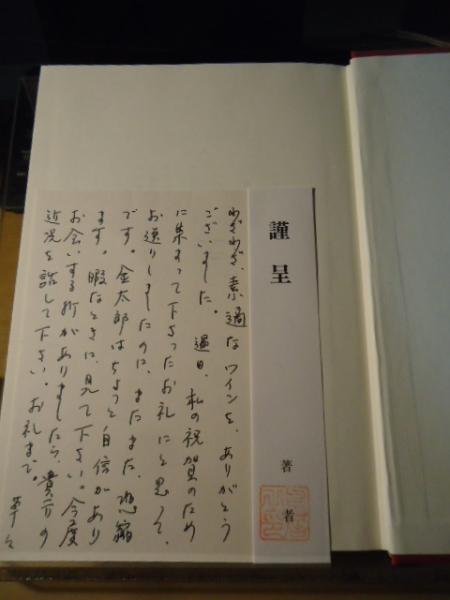 謹呈
著者
わざわざ、素適なワインを、ありがとう
ございました。過日、私の祝賀のため
に集まって下さったお礼にと思って、
お送りしましたのに、またまた、恐縮
です。金太郎はちょっと自信があり
ます。暇なときに、見て下さい。今度
お会いする折がありましたら、貴方の
近況を話して下さい。お礼まで。草々